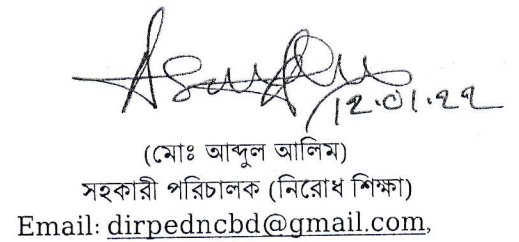 12.01.22
(মোঃ আব্দুল আলিম)
সহকারী পরিচালক (নিরোধ শিক্ষা)
Email: dirpedncbd@gmail.com,